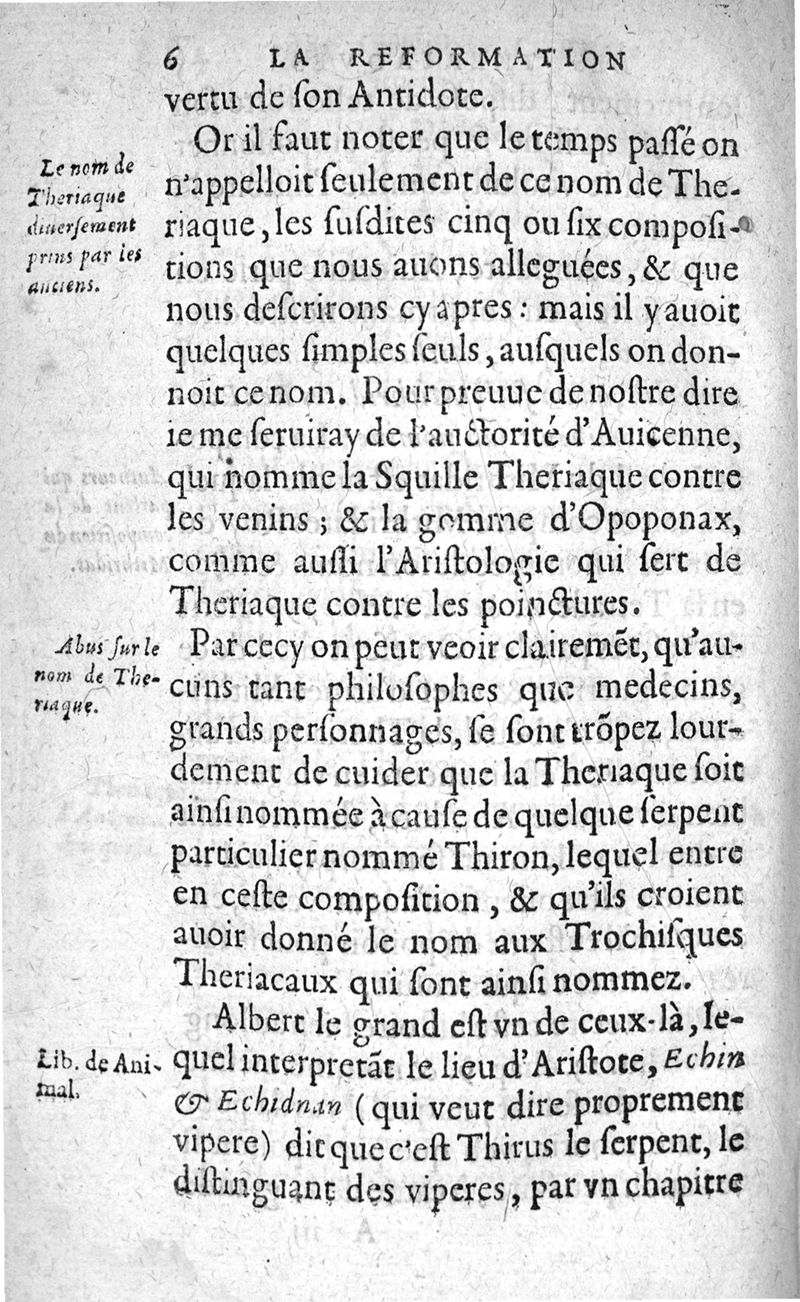 6 LA REFORMATION
vertu de ſon Antidote.
Or il faut noter que le temps paſſé on
Le nom de
Theriaque
diuerſement
prins par les
anciens.
n'appelloit ſeulement de ce nom de The-
riaque, les ſuſdites cinq ou ſix compoſi-
tions que nous auons alleguées, & que
nous deſcrirons cy apres : mais il y auoit
quelques ſimples ſeuls, auſquels on don-
noit ce nom. Pour preuue de noſtre dire
ie me ſeruiray de l'auctorité d'Auicenne,
qui nomme la Squille Theriaque contre
les venins ; & la gomme d'Opoponax,
comme auſſi l'Ariſtologie qui ſert de
Theriaque contre les poinctures.
Abus ſur le
nom de The-
riaque.
Par cecy on peut veoir clairemẽt, qu'au-
cuns tant philoſophes que medecins,
grands perſonnages, ſe ſont trõpez lour-
dement de cuider que la Theriaque ſoit
ainſi nommée à cauſe de quelque ſerpent
particulier nommé Thiron, lequel entre
en ceſte compoſition , & qu'ils croient
auoir donné le nom aux Trochiſques
Theriacaux qui ſont ainſi nommez.
Albert le grand eſt vn de ceux-là, le-
Lib. de Ani-
mal.
quel interpretãt le lieu d'Ariſtote, Echin
& Echidnan (qui veut dire proprement
vipere) dit que c'eſt Thirus le ſerpent, le
diſtinguant des viperes, par vn chapitre